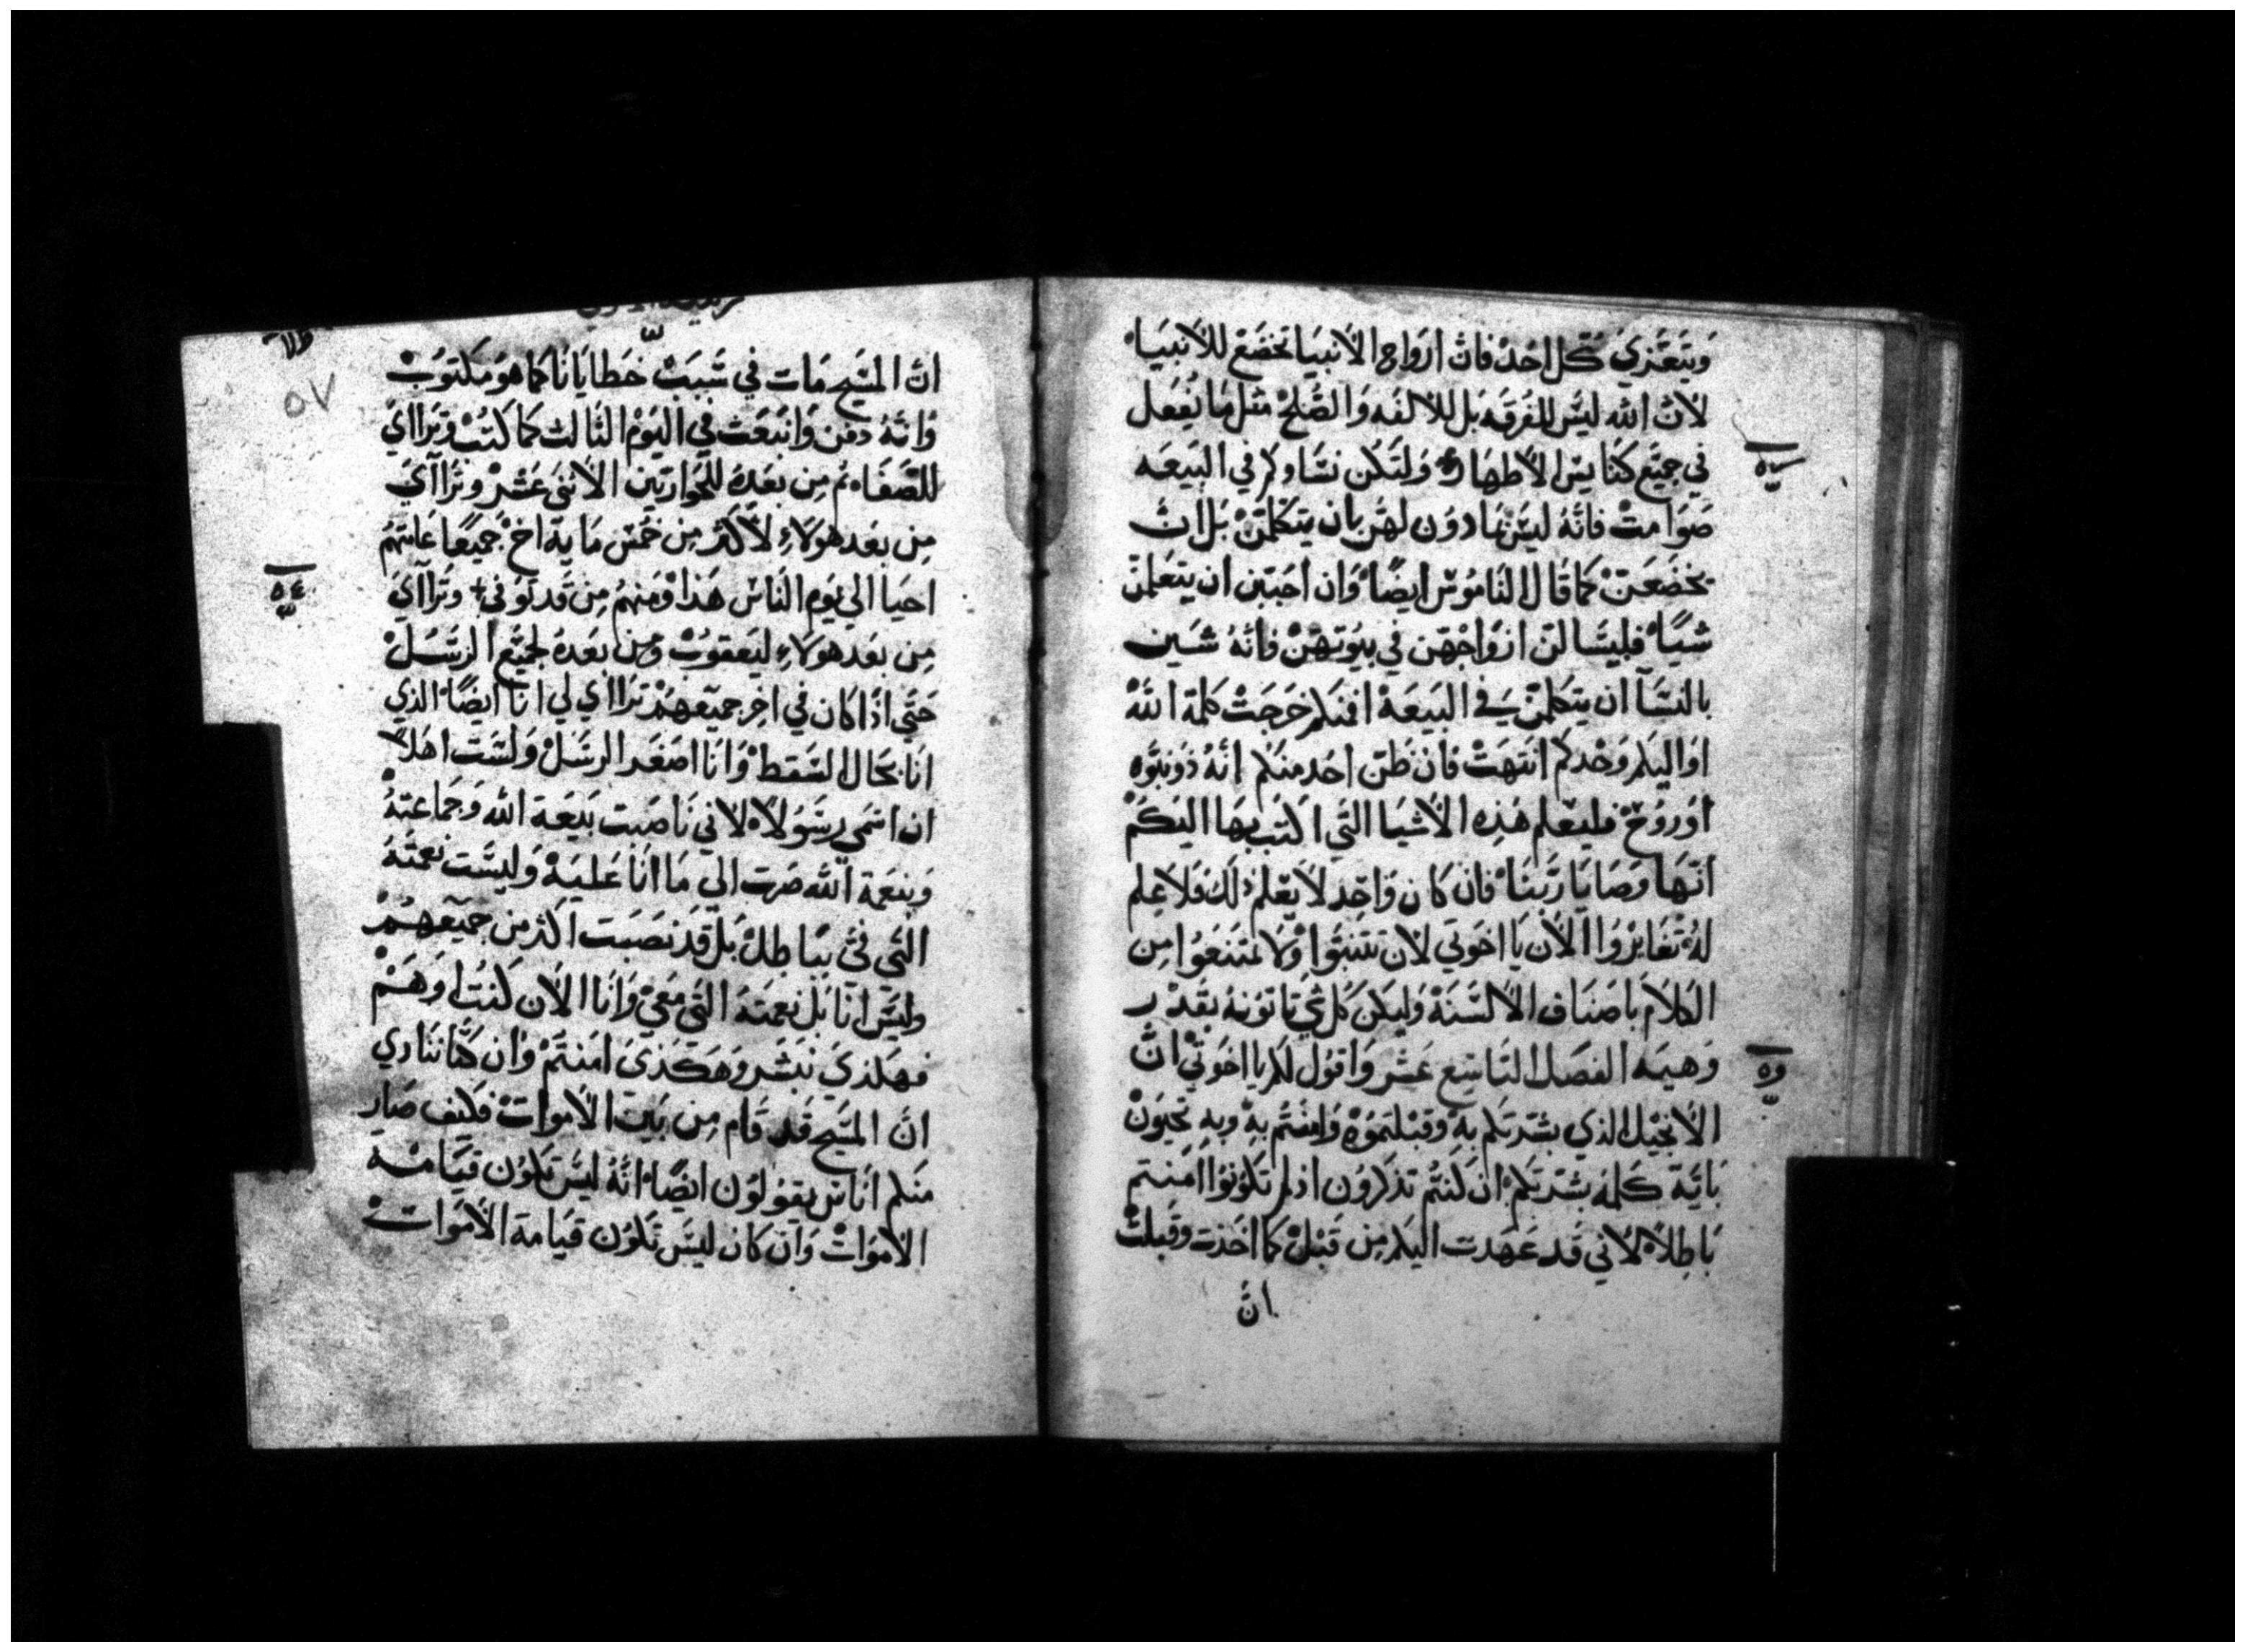 ويتعزي كل احد فان ارواح الانبيا تخضع للانبيا
لان الله ليس للفرقه بل للالفه والصلح مثل ما نفعل
في جميع كنايس الاطهار ولتكن نساوكم في البيعه
صوامت فانه ليس بمادون لهن بان يتكلمن بل ان
يخضعن كما قال الناموس ايضا وان احببن ان يتعلمن
شيا فليسالن ازواجهن في بيوتهن فانه شين
بالنسا ان يتكلمن في البيعه افمنكم خرجت كلمة الله
او اليكم وحدكم انتهت فان ظن احد منكم انه ذو نبوه
او روح فليعلم هذه الاشيا التي اكتب بها اليكم
انها وصايا ربنا فان كان واحد لا يعلم ذلك فلا علم
له تغايروا الان يا اخوتي لان تتنبوا ولا تمتنعوا من
الكلام باصناف الالسنة وليكن كل شي تاتونه بقدر
وهيمه الفصل التاسع عشر واقول لكم يا اخوتي ان
الانجيل الذي بشرتكم به وقبلتموه وامنتم به وبه تحيون
باية كلمه بشرتكم ان كنتم تذكرون اذ لم تكونوا امنتم
باطلا لاني قد عهدت اليكم من قبل كما اخذت وقبلت
ان
٥٧
ان المسيح مات في سبب خطايانا كما هو مكتوب
وانه دفن وانبعث في اليوم الثالث كما كتب وتراااي
للصفا ثم من بعده للحواريين الاثني عشر وتراآي
من بعد هولاء لاكثر من خمس ماية اخ جميعا عامتهم
احيا الي يوم الناس هذا ومنهم من قد توفي وتراآي
من بعد هولاء ليعقوب ومن بعده لجميع الرسل
حتي اذا كان في اخر جميعهم تراااي لي انا ايضا الذي
انا بحال السقط وانا اصغر الرسل ولست اهلا
ان اسمي رسولا لاني ناصبت بيعة الله وجماعته
وبنعمة الله صرت الي ما انا عليه وليست نعمته
التي في بباطل بل قد نصبت اكثر من جميعهم
وليس انا بل نعمته التي معي وانا الان كنت او هم
فهكذي نبشر وهكذي امنتم وان كنا ننادي
ان المسيح قد قام من بين الاموات فكيف صار
منكم اناس يقولون ايضا انه ليس تكون قيامة
الاموات وان كان ليس تكون قيامة الاموات